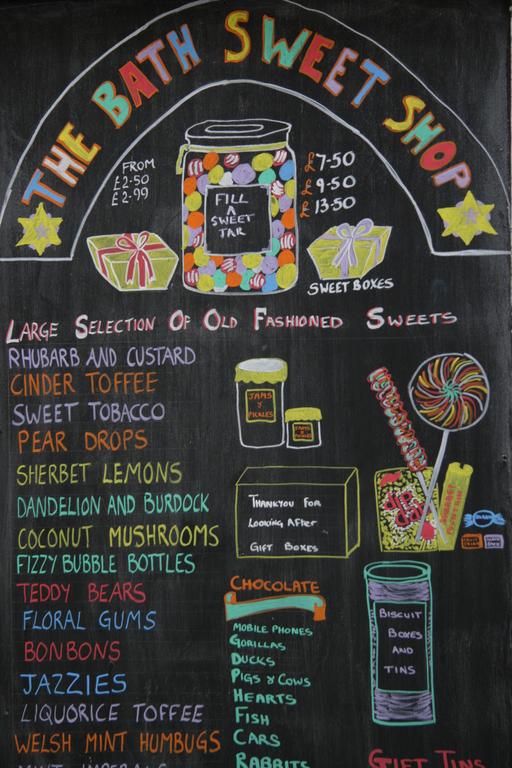 THE BATH SWEET SHOP
FROM
£2.50
£2.99
£7-50
£9-50
£13-50
FILL
A
SWEET
JAR
SWEET BOXES
LARGE SELECTION OF OLD FASHIONED SWEETS
RHUBARB AND CUSTARD
CINDER TOFFEE
SWEET TOBACCO
PEAR DROPS
SHERBET LEMONS
DANDELION AND BURDOCK
COCONUT MUSHROOMS
FIZZY BUBBLE BOTTLES
TEDDY BEARS
FLORAL GUMS
BONBONS
JAZZIES
LIQUORICE TOFFEE
WELSH MINT HUMBUGS
MINT IMPERIALS
JAMS
&
PICKLES
JAMS
& PICKLES
THANKYOU FOR
LOOKING AFTER
GIFT BOXES
CHOCOLATE
MOBILE PHONES
GORILLAS
DUCKS
PIGS & COWS
HEARTS
FISH
CARS
RABBITS
BISCUIT
BOXES
AND
TINS
GIFT TINS